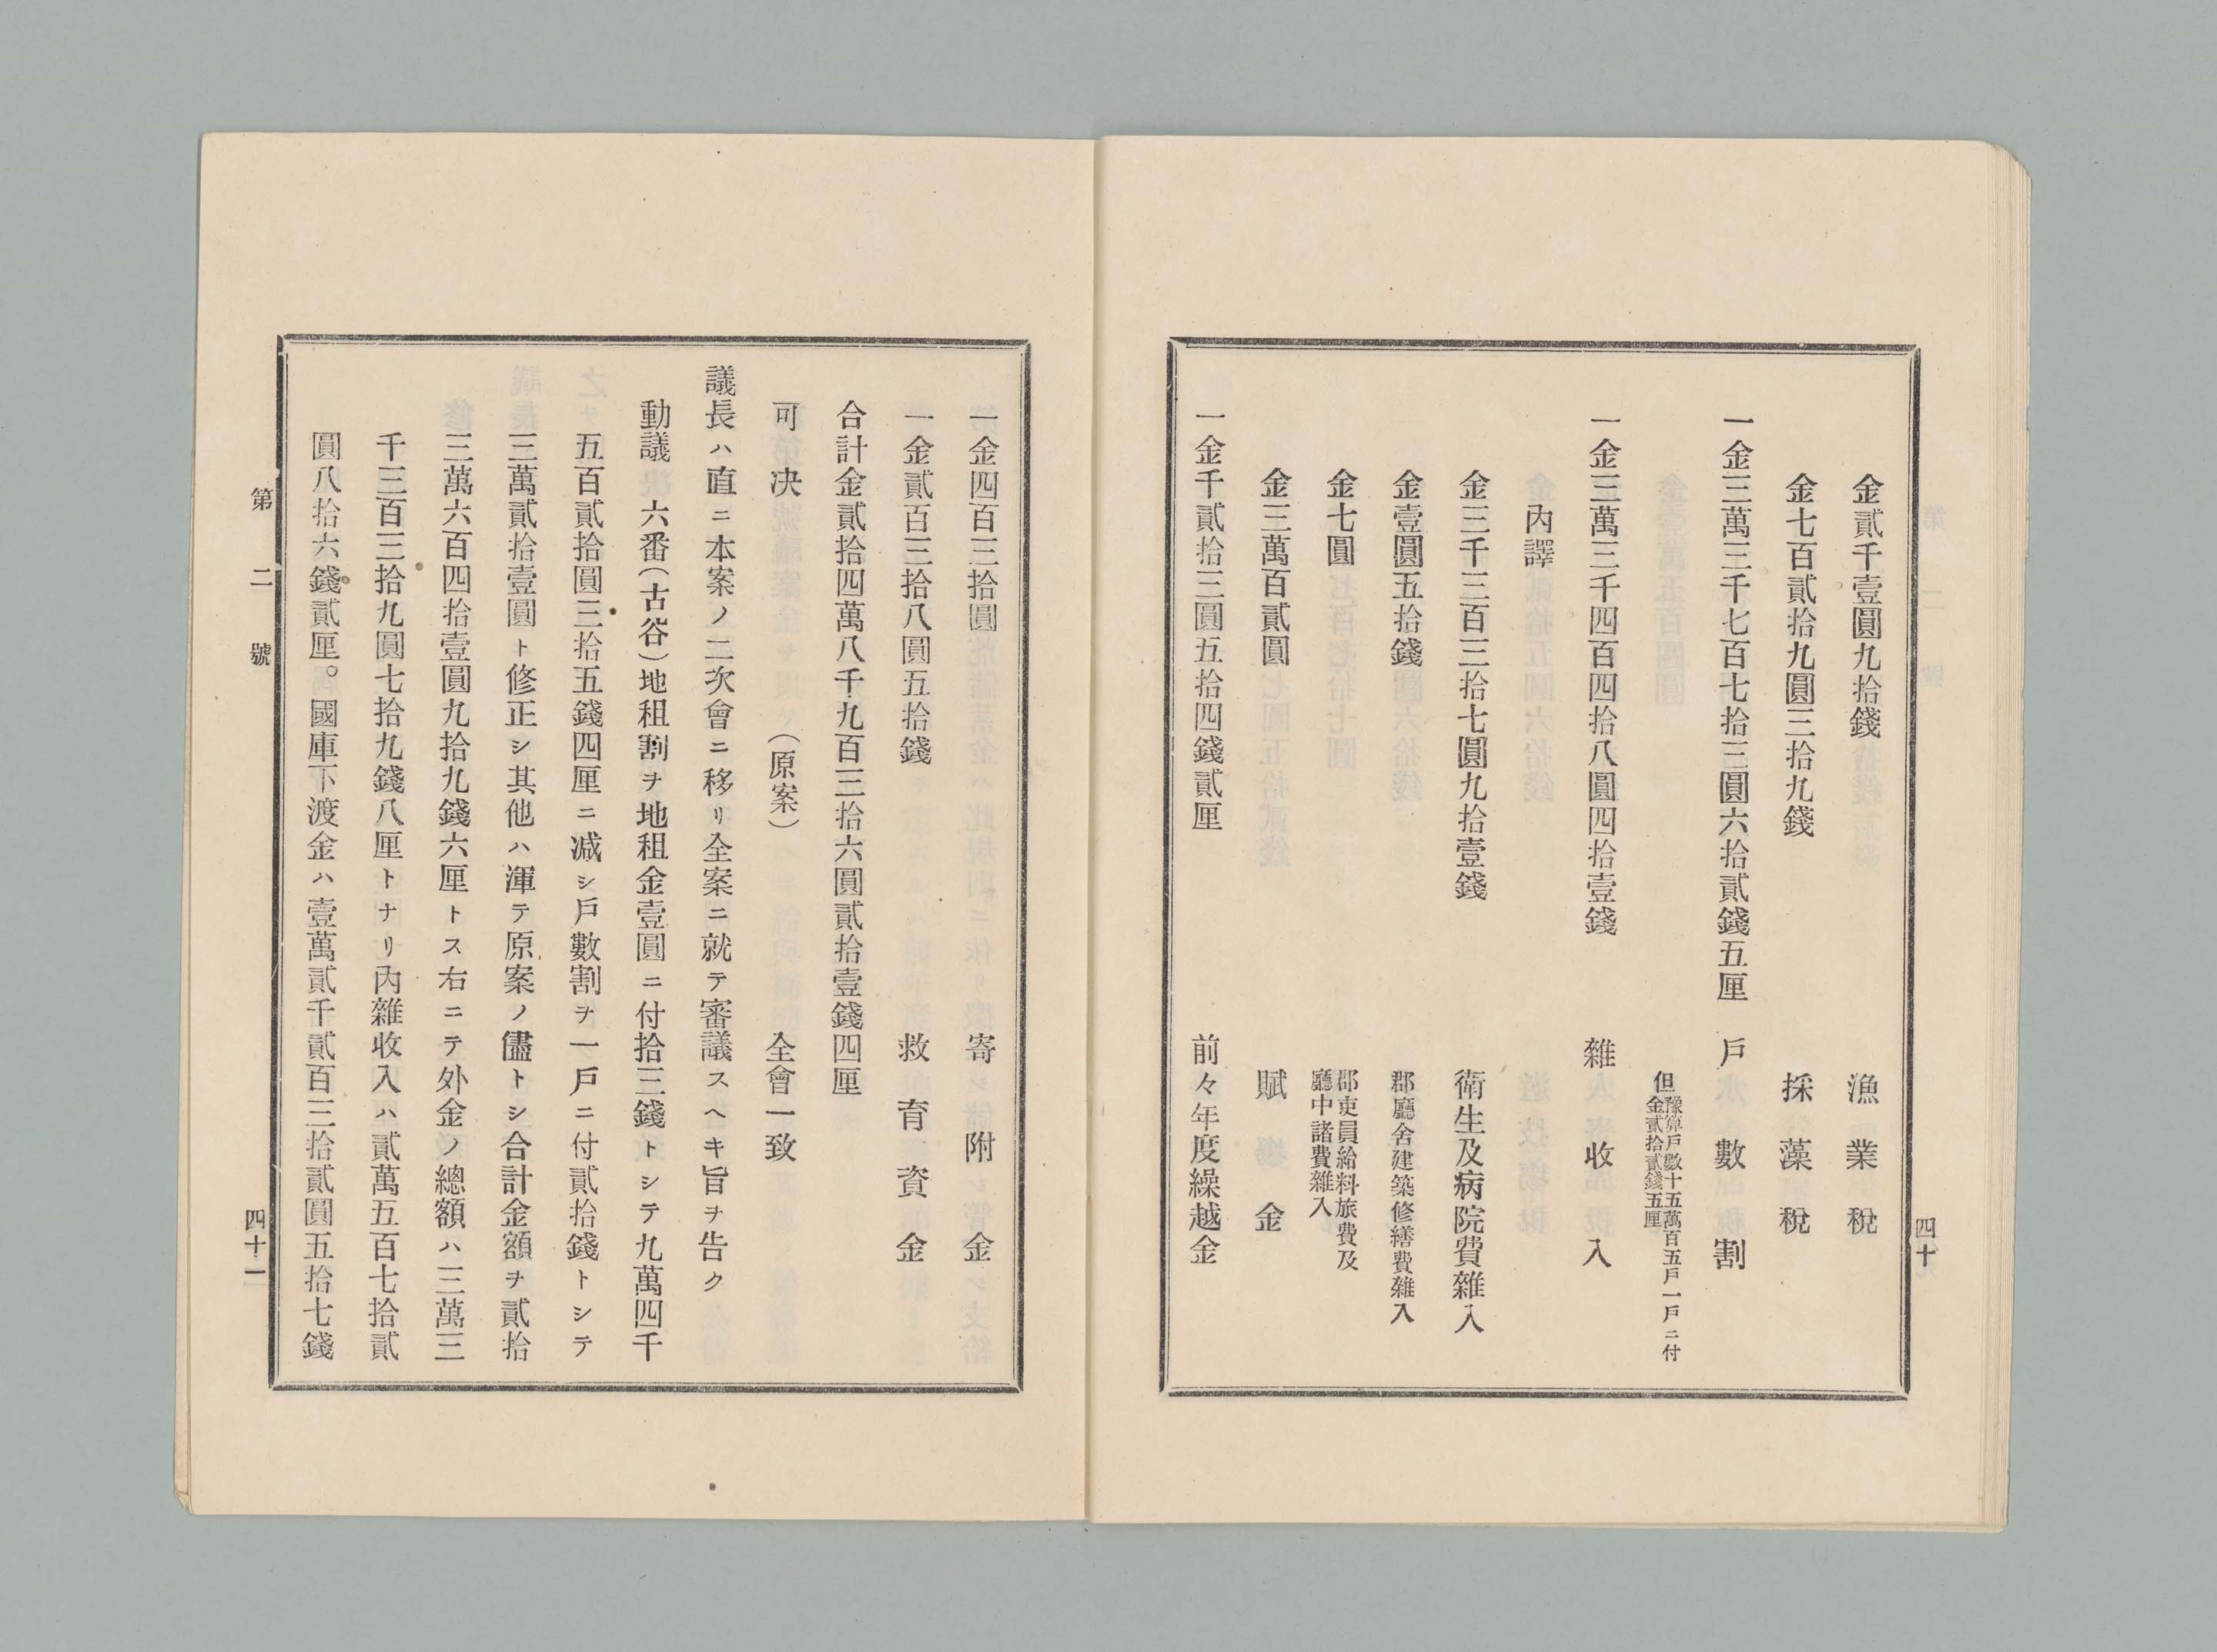 金貳千壹圓九拾錢　漁業稅
金七百貳拾九圓三拾九錢　採藻稅
一金三萬三千七百七拾三圓六拾貳錢五厘　戶數割
但豫算戶數十五萬百五戶一戶ニ付
金貳拾貳錢五厘
一金三萬三千四百四拾八圓四拾壹錢　雜收入
內譯
金三千三百三拾七圓九拾壹錢　衛生及病院費雜入
金壹圓五拾錢　郡廳舍建築修繕費雜入
金七圓　郡吏員給料旅費及
廳中諸費雜入
金三萬百貳圓　賦金
一金千貳拾三圓五拾四錢貳厘　前々年度繰越金
四十
一金四百三拾圓　寄附金
一金貳百三拾八圓五拾錢　救育資金
合計金貳拾四萬八千九百三拾六圓貳拾壹錢四厘
可決（原案）　全會一致
議長ハ直ニ本案ノ二次會ニ移リ全案ニ就テ審議スヘキ旨ヲ告ク
動議　六番（古谷）地租割ヲ地租金壹圓ニ付拾三錢トシテ九萬四千
五百貳拾圓三拾五錢四厘ニ減シ戶數割ヲ一戶ニ付貳拾錢トシテ
三萬貳拾壹圓ト修正シ其他ハ渾テ原案ノ儘トシ合計金額ヲ貳拾
三萬六百四拾壹圓九拾九錢六厘トス右ニテ外金ノ總額ハ三萬三
千三百三拾九圓七拾九錢八厘トナリ內雜收入ハ貳萬五百七拾貳
圓八拾六錢貳厘。國庫下渡金ハ壹萬貳千貳百三拾貳圓五拾七錢
第二號
四十一